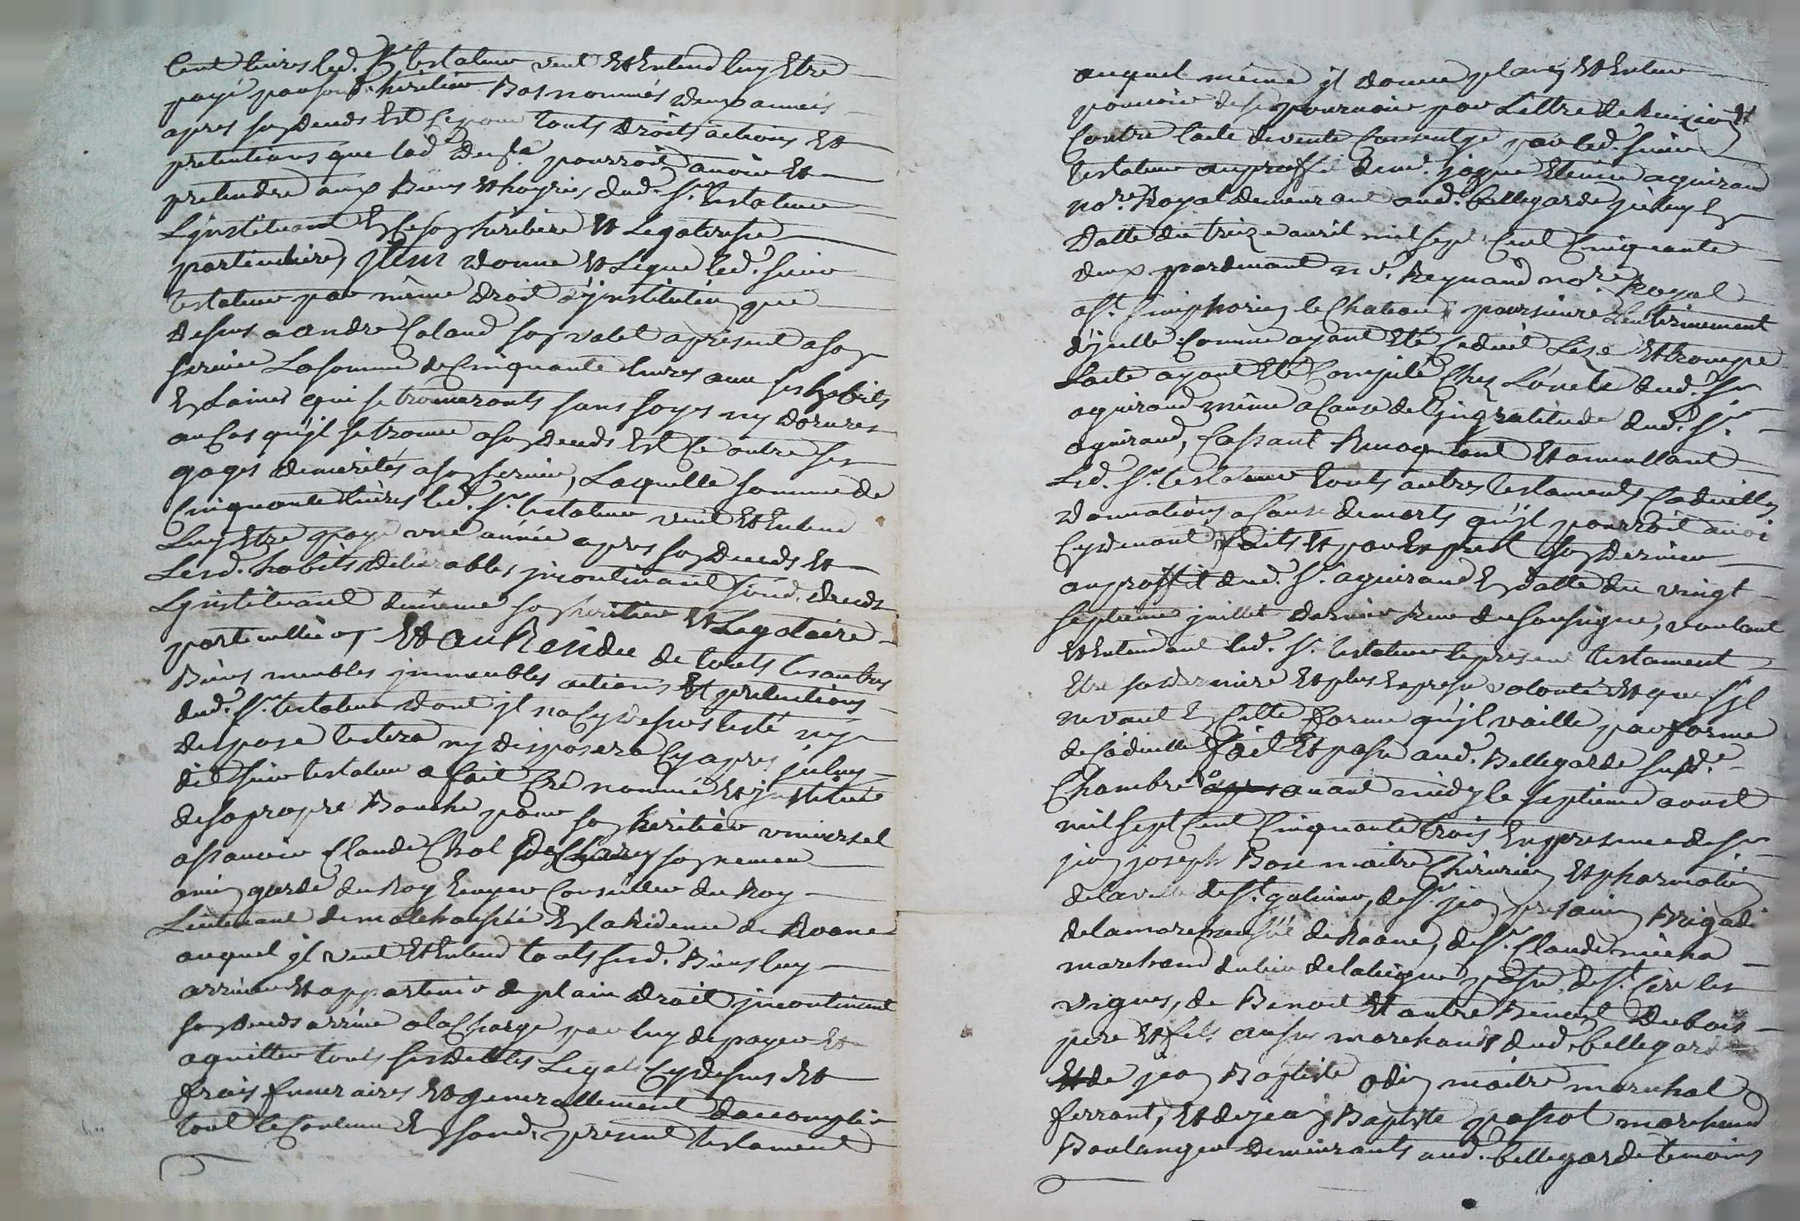 Cent livres led. Sr testateur veut Et Entend luy Etre
payé par son d. heritier Bas nommés deux années
apres son deceds Est Ce pour touts droits actions Et
pretentions que lad. pourroit avoir Et
pretendre aux Biens Et hoyries dud. Sr testateur
Linstituant En Ce son heritiere Et Legateresse
particuliere, Item donne Et Legue led. sieur
testateur par même droit d'institution que
dessus a andré Coland son valet apresent a son
service La somme de Cinquante livres avec ses habits
En Laines qui se trouveronts sans soyes ny dorures
au Cas qu'jl se trouve a son deceds Est Ce outre ses
gages demerités a son service, Laquelle somme de
Cinquante livres led. Sr testateur veut Et Entend
Luy Etre payé une année apres son deceds Et
Lesd. habits delivrables jncontinant sond. deceds
Linstituant de même son heritier Et Legataire
particullier, Et au Residu de touts les autres
Biens meubles jmmeubles actions Et pretentions
dud. Sr testateur dont jl na Cy dessus testé ny
disposé testera ny disposera Cy apres jceluy
dit sieur testateur a fait Créé nommé Et jnstitué
de sa propre Bouche pour son heritier universel
assavoir Claude Chol de Clarey son
amy garde du Roy Ecuyer Conseiller du Roy
Lieutenant de maréchaussée En la Residence de Roane
auquel jl veut Et Entend touts sesd. Biens luy
arriver Et appartenir de plain droit jncontinent
son deceds arrivé a la Charge par luy de payer Et
aquitter touts ses dettes Legats Cy dessus Et
frais funeraires Et generallement daccomplir
tout le Contenu En sond. present testament
auquel même jl donne plain Et Entier
pouvoir de se pourvoir par Lettre de Recizion Et
Contre lacte de vente Consentye par led. sieur
testateur au proffit de me. jaque Etienne aguiraud
nore. Royal demeurant aud. Bellegarde jcelluy En
datte du treize avril mil sept Cent Cinquante
deux pardevant me. Reynaud nore. Royal
a St. Simphorien le Chateau, poursuivre Lenterinement
d'jcelle Comme ayant Eté seduit Lezé Et trompé
Lacte ayant Eté Compilé Chez L'etude dud. Sr
aguiraud même a Cause de Lingratitude dud. Sr.
aguiraud, Cassant Revoquant Et annullant
Led. Sr testateur touts autres testaments Codicilles
donnations a Cause de morts qu'jl pourroit avoir
Cy devant faits Et par Exprest son dernier
au proffit dud. Sr. aguiraud En datte du vingt
septieme juillet dernier Reçu du soussigné, voulant
Et Entendant led. Sr. testateur le present testament
Etre sa derniere Et plus Expresse volonté Et que s'jl
ne vaut En Cette forme qu'jl vaille par forme
de Codicille fait Et passé aud. Bellegarde susd.
Chambre avant midy le septieme aoust
mil sept Cent Cinquante trois En presence de Sr
jean joseph Bose maitre Chirurgien Et pharmatien
de la ville de St. galmier, de Sr. jean Brigad.
de la marechaussée de Roane, de Sr. Claude
marchand du lieu de la parse. de St. Cire les
vignes, de Benoit Et autre Benoit Dubois
pere Et fils aussi marchands dud. Bellegarde
Et de jean Baptiste odin maitre marechal
ferrant, Et de jean Baptiste passot marchand
Boulanger demeurants aud. Bellegarde temoins